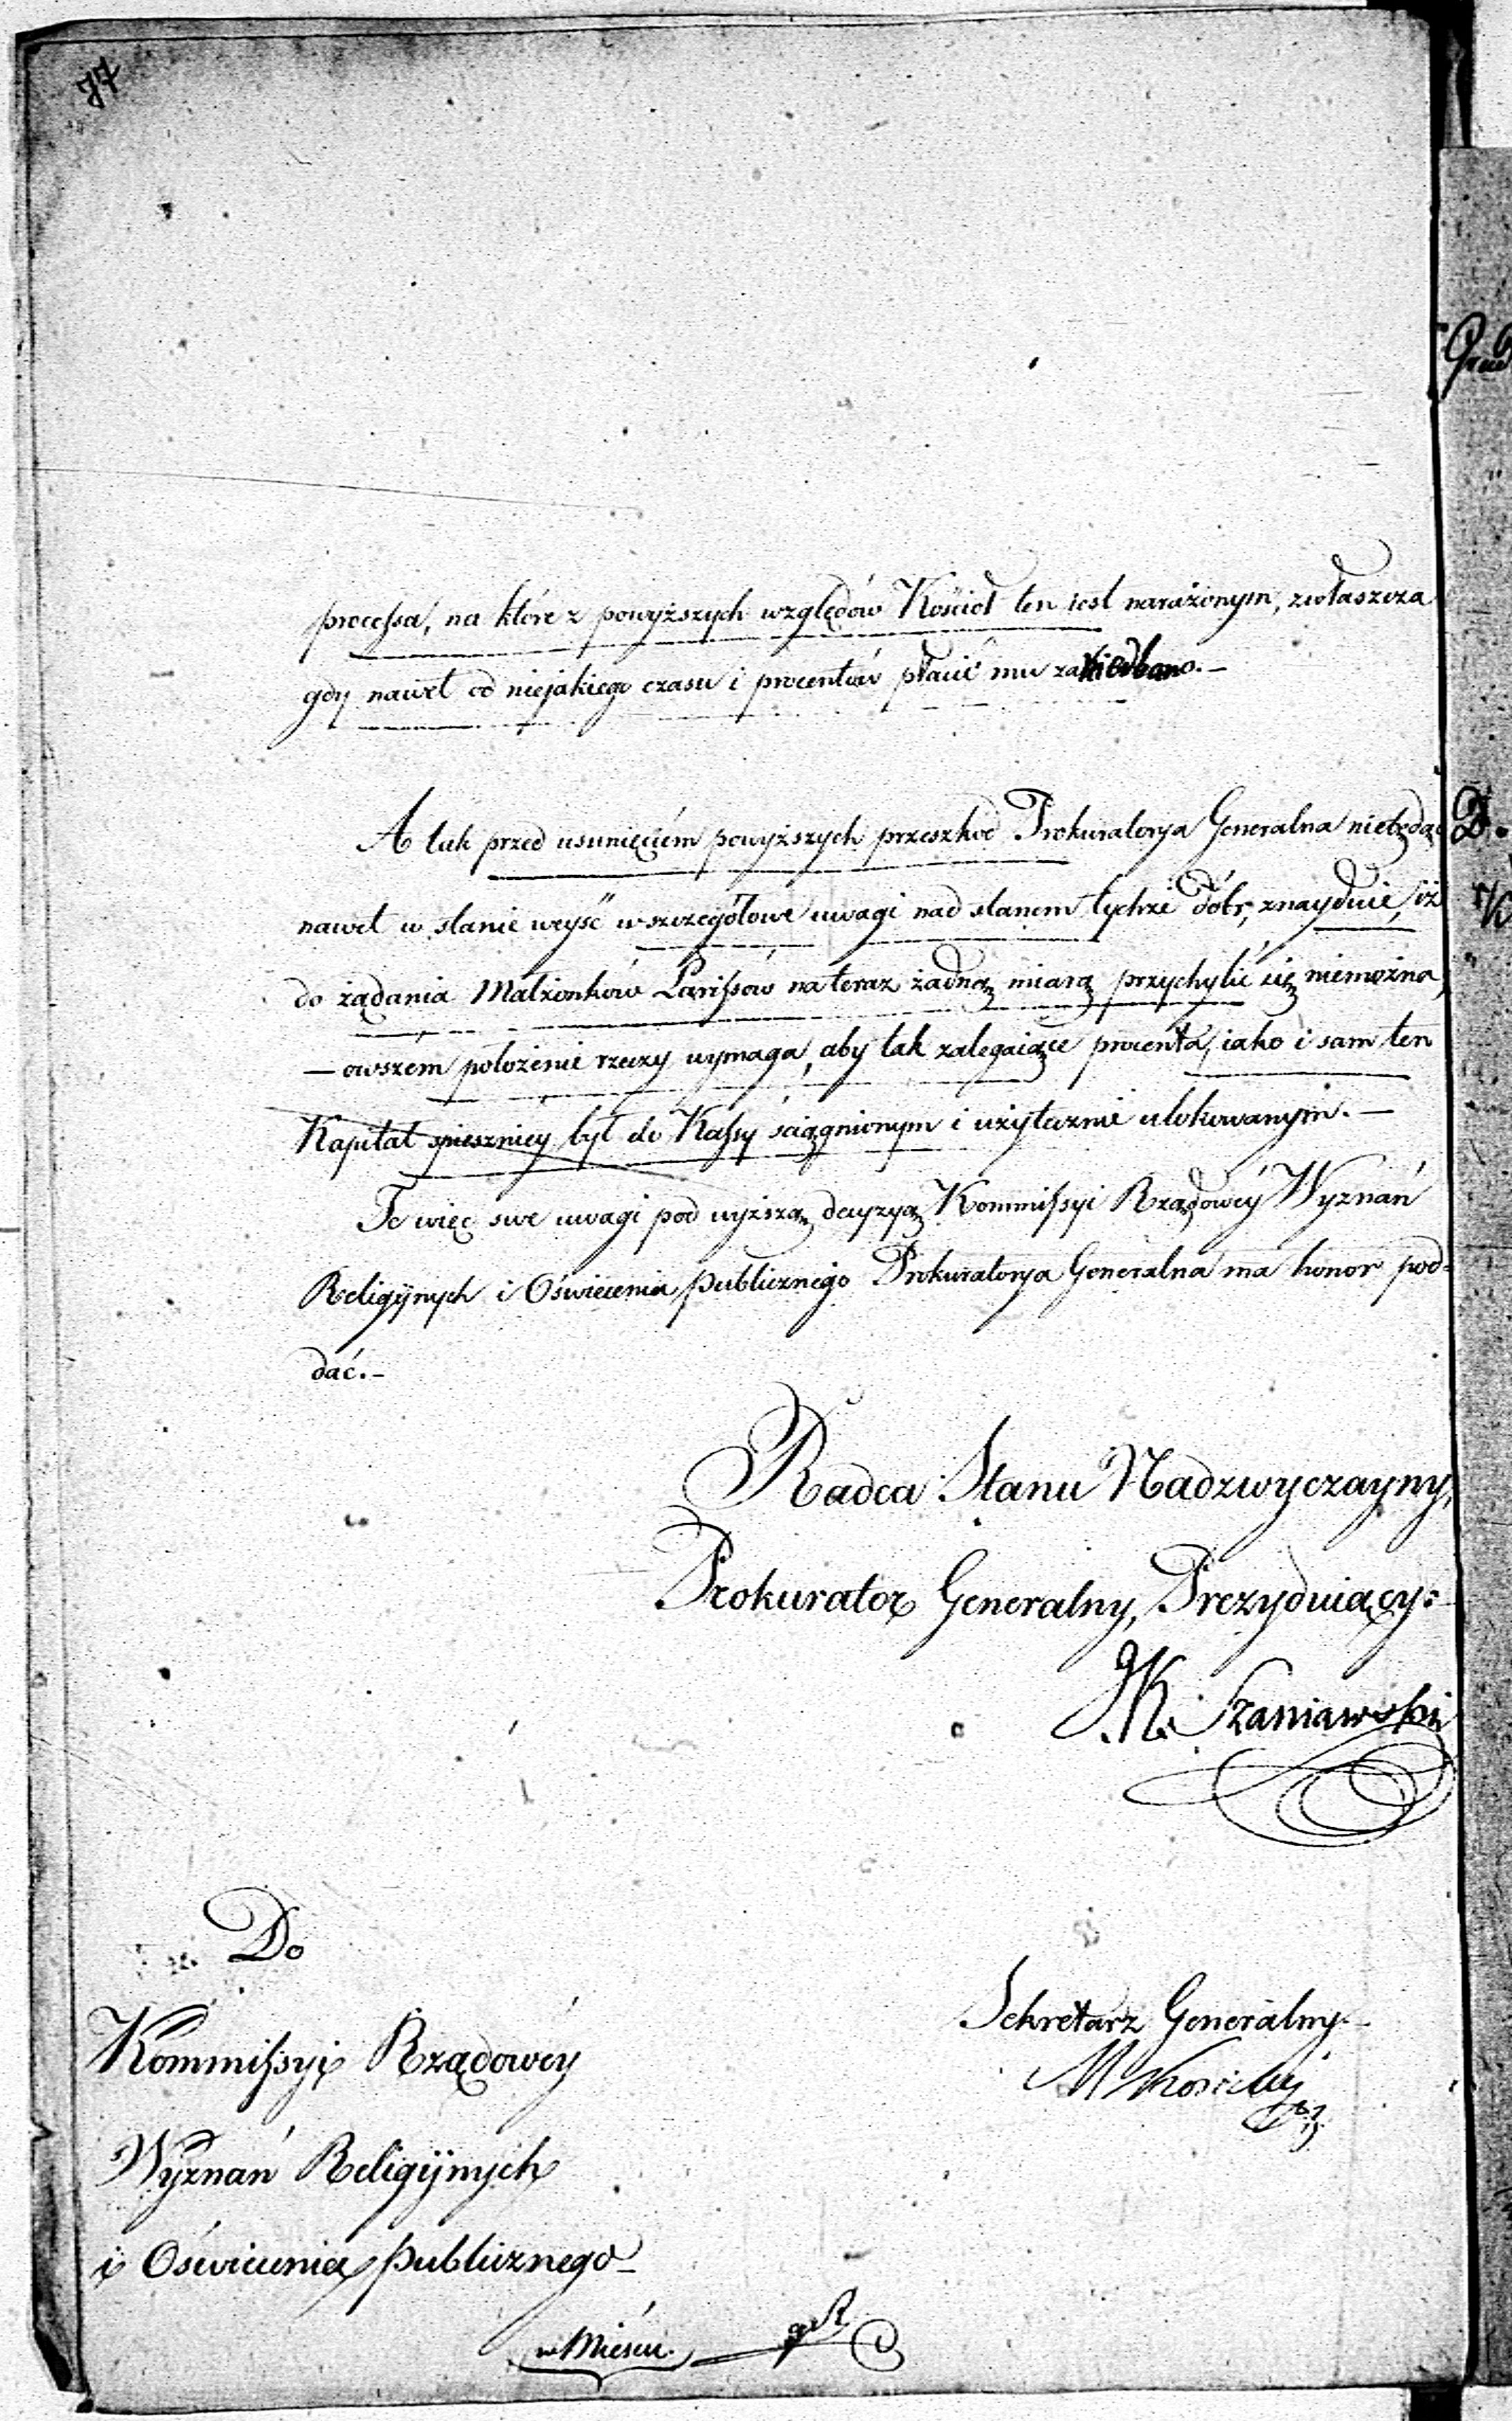 77
processa, na które z powyższych względów Kościół ten iest narażonym, zwłaszcza
gdy nawet od niejakiego czasu i procentów płacić mu zaniedbano.—
A tak przed usunięciem powyższych przeszkód Prokuratorya Generalna niebędąc
nawet w stanie wejść w szczegółowe uwagi nad stanem tychże dóbr, znayduie, iż
do żądania Małżonków Larissów na teraz żadną miarą przychylić się niemożna,
— owszem położenie rzeczy wymaga, aby tak zalegaiące procenta, iako i sam ten
Kapitał spieszniey był do Kassy ściągnionym i użytecznie ulokowanym.—
Te więc swe uwagi pod wyższą decyzyą Kommissyi Rządowéy Wyznań
Religijnych i Oświecenia publicznego Prokuratorya Generalna ma honor pod=
dać.—
Radca Stanu Nadzwyczayny,
Prokurator Generalny, Prezyduiący:
JK. Szaniawski
Do
Kommissyi Rządowéy
Wyznań Religijnych
i Oświecenia publicznego
w Mieście.
Sekretarz Generalny.